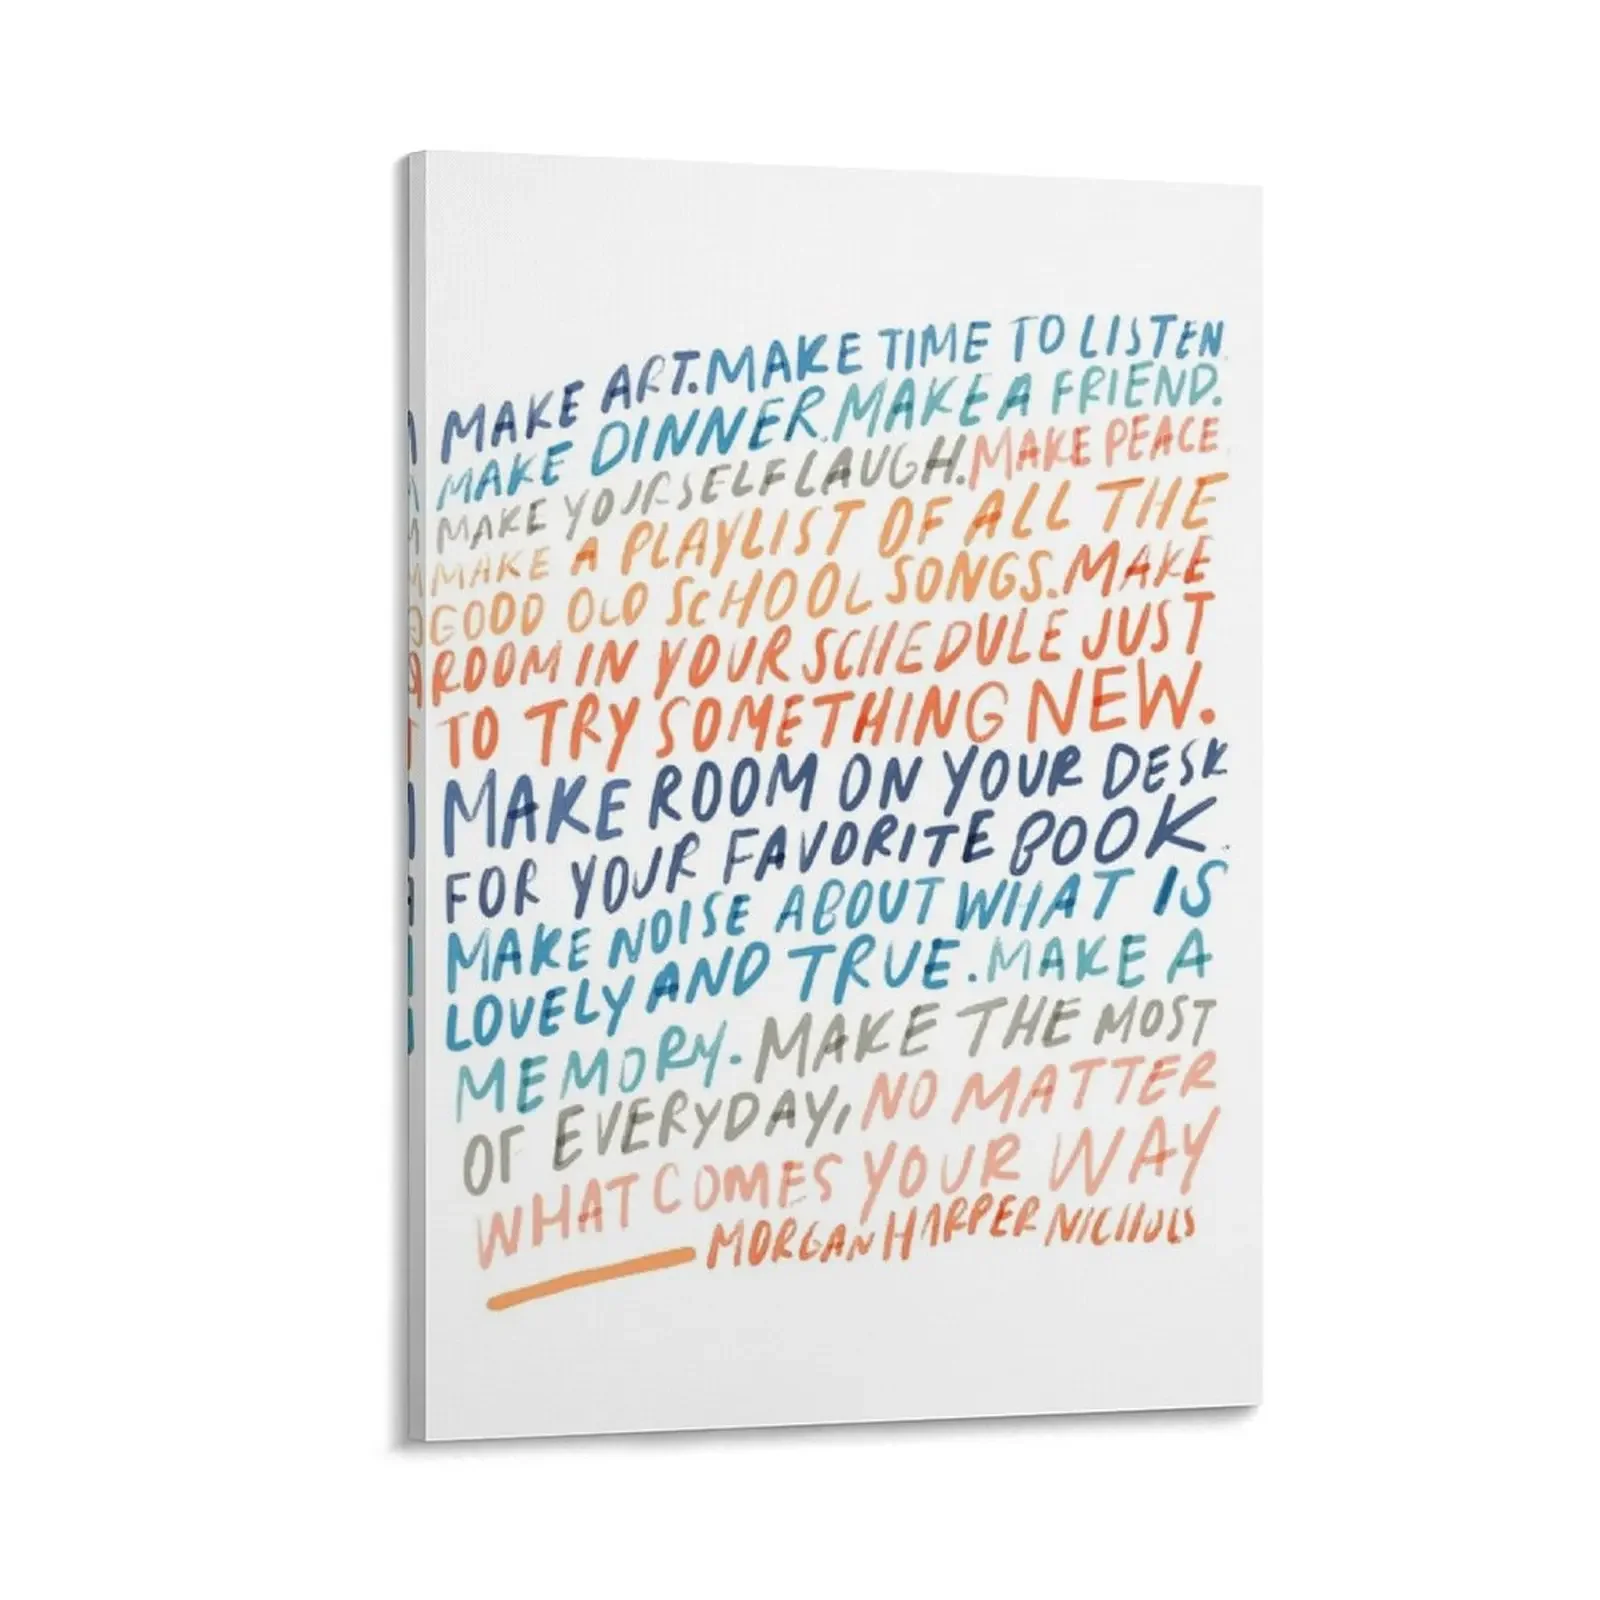 MAKE ART. MAKE TIME TO LISTEN
MAKE DINNER. MAKE A FRIEND.
MAKE YOURSELF LAUGH. MAKE PEACE
MAKE A PLAYLIST OF ALL THE
GOOD OLD SCHOOL SONGS. MAKE
ROOM IN YOUR SCHEDULE JUST
TO TRY SOMETHING NEW.
MAKE ROOM ON YOUR DESK
FOR YOUR FAVORITE BOOK.
MAKE NOISE ABOUT WHAT IS
LOVELY AND TRUE. MAKE A
MEMORY. MAKE THE MOST
OF EVERYDAY, NO MATTER
WHAT COMES YOUR WAY
MORGAN HARPER NICHOLS